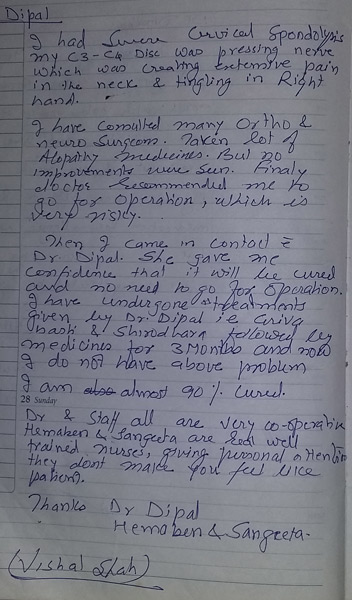 Dipal
I had Severe Cervical Spondolysis
my C3-C4 Disc was pressing nerve
which was creating extensive pain
in the neck & tingling in Right
hand.
I have consulted many Ortho &
neuro Surgeon. Taken lot of
Alopathy medicines. But no
improvements were seen. Finaly
doctor Recommended me to
go for operation, which is
very risky.
Then I came in contact =
Dr Dipal. She gave me
confidence that it will be cured
and no need to go for operation.
I have undergone treatments
given by Dr. Dipal i.e Griva
basti & Shirodhara followed by
medicines for 3 Months and now
I do not have above problem
I am almost 90% cured.
28 Sunday
Dr & Staff all are very co-operative
Hemaben & Sangeeta are well
trained nurses, giving personal attention
they dont make you feel like
patient.
Thanks Dr Dipal
Hemaben & Sangeeta.
(Vishal Shah)